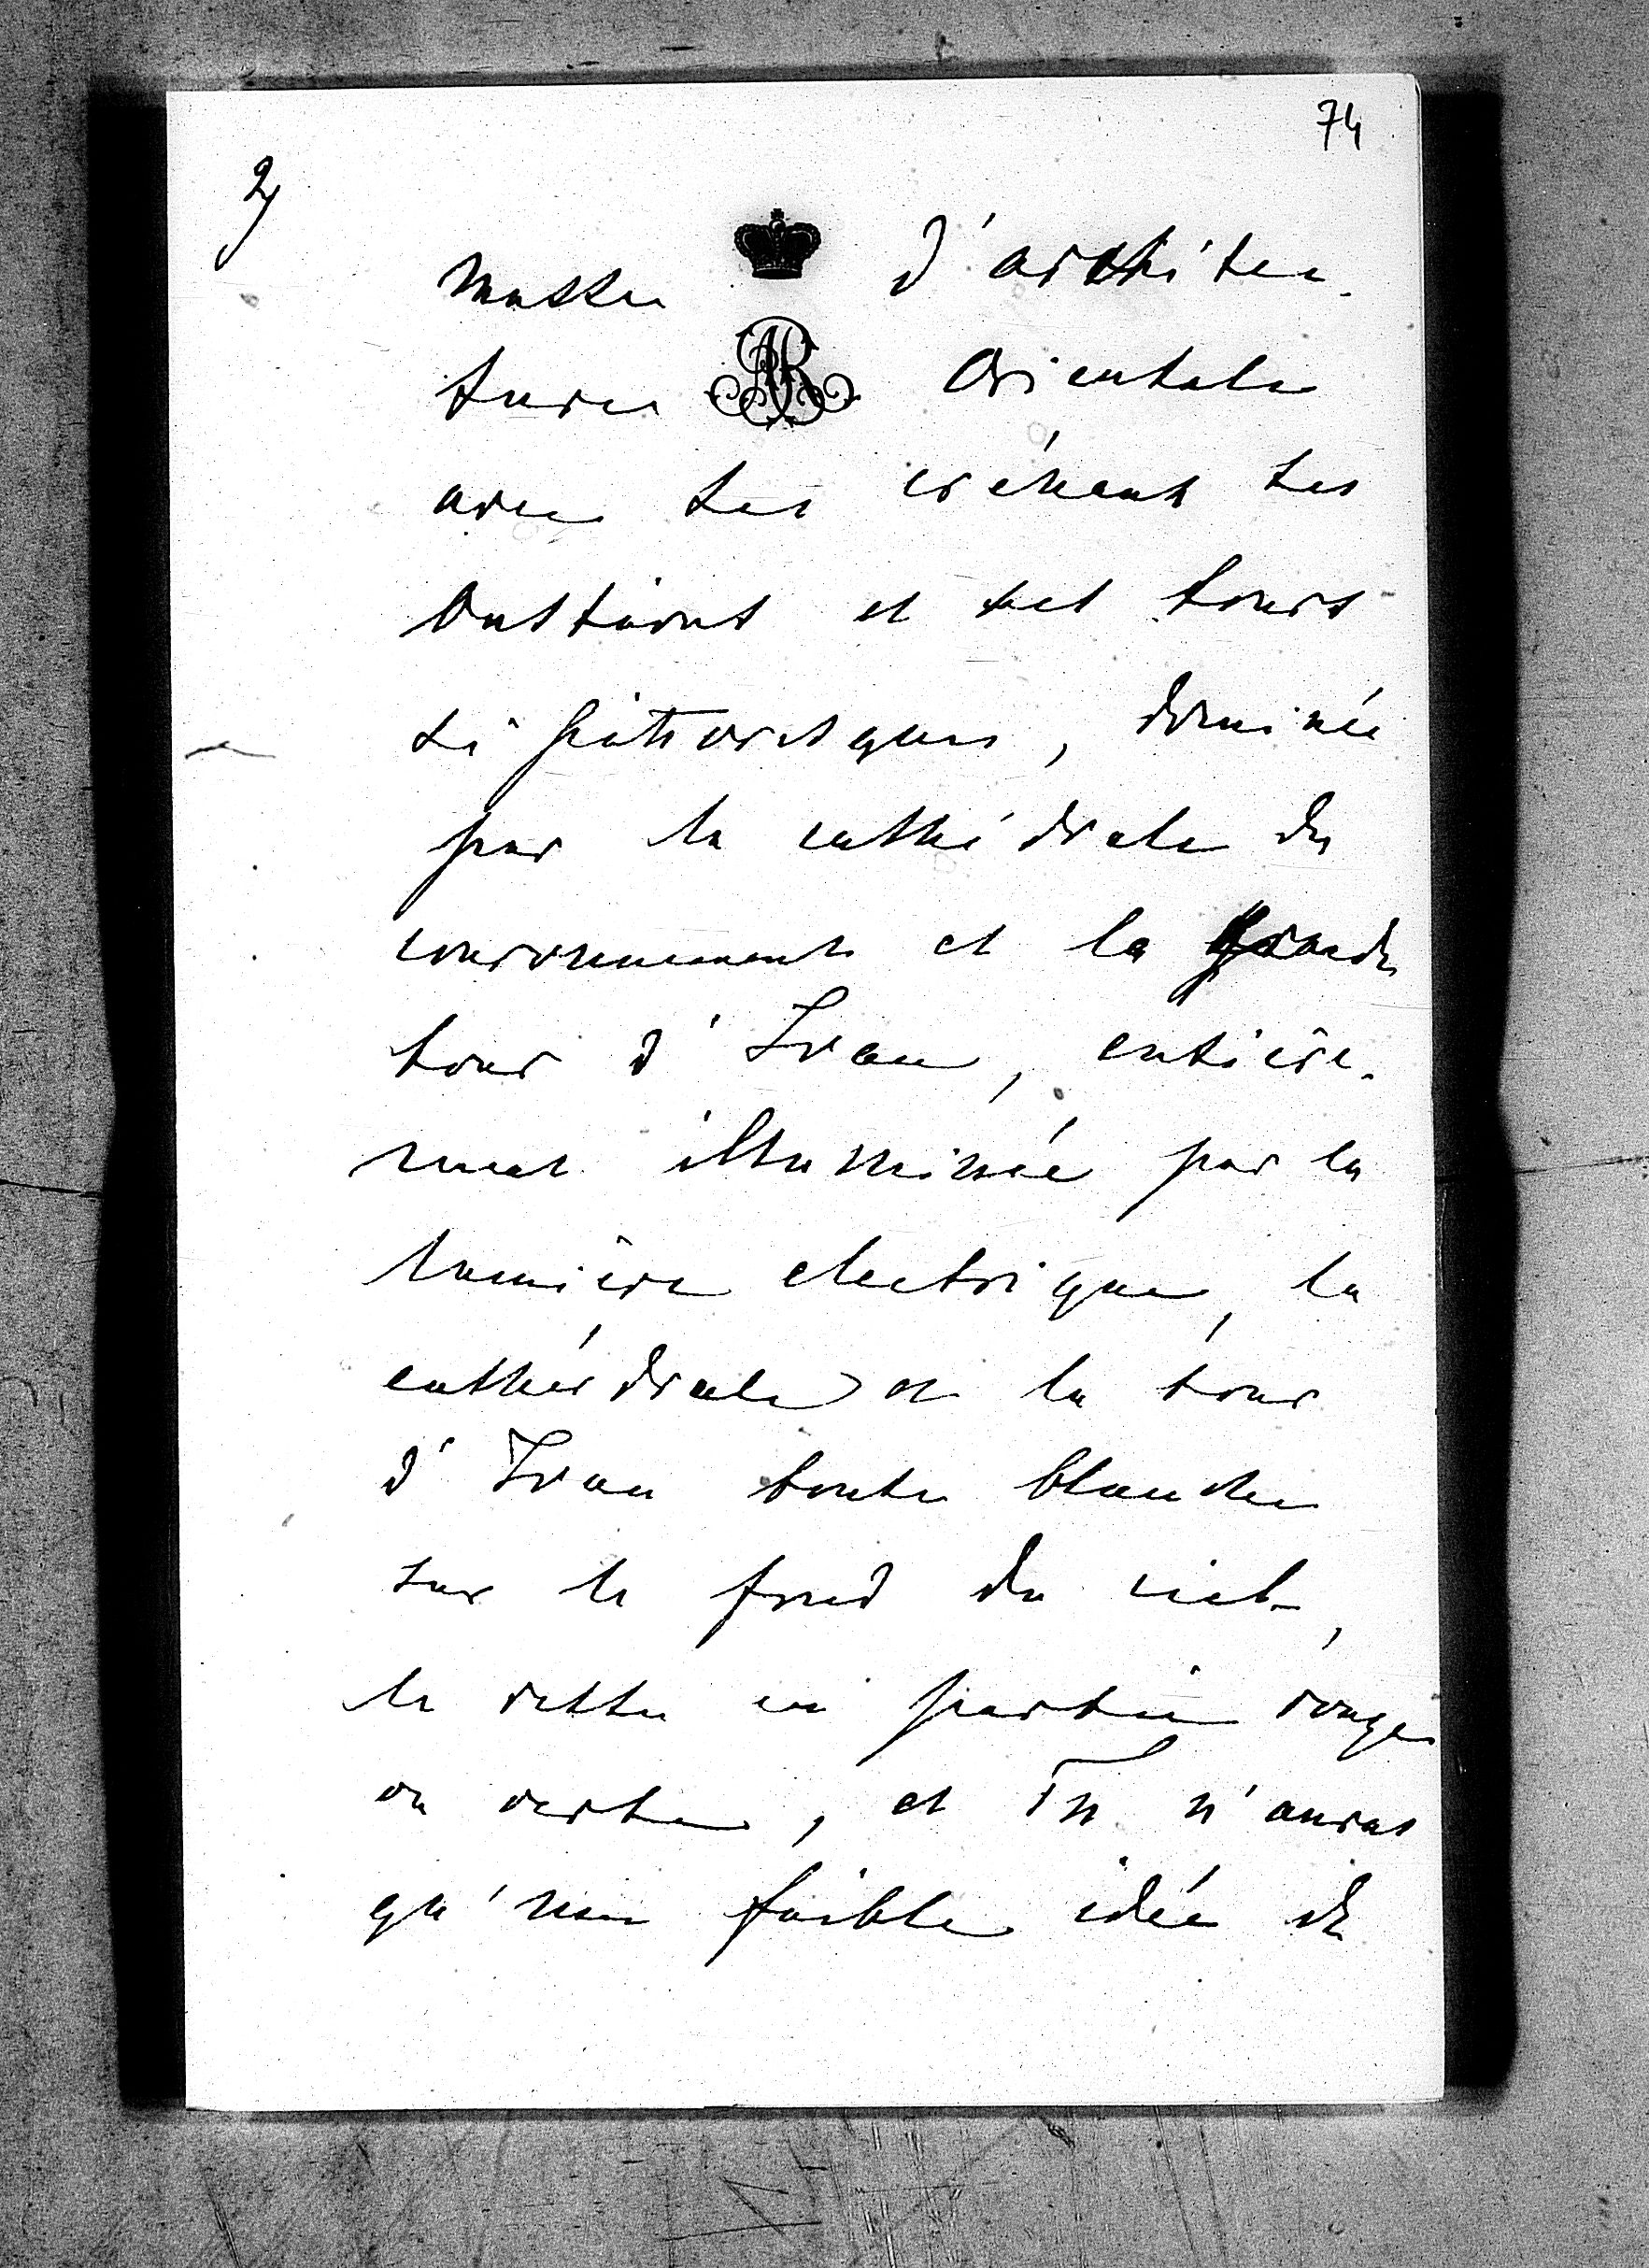 74
2)
masse d'architec-
ture Orientale
avec ses créneaux ses
bastions et ses tours
si pittoresques, dominée
par la cathédrale du
couronnement et la grande
tour d'Ivan, entière-
ment illuminée par la
lumière electrique, la
cathédrale et la tour
d'Ivan toute blanche
sur le fond du ciel,
le reste en partie rouge
ou verte, et Tu n'auras
qu'une faible idée de